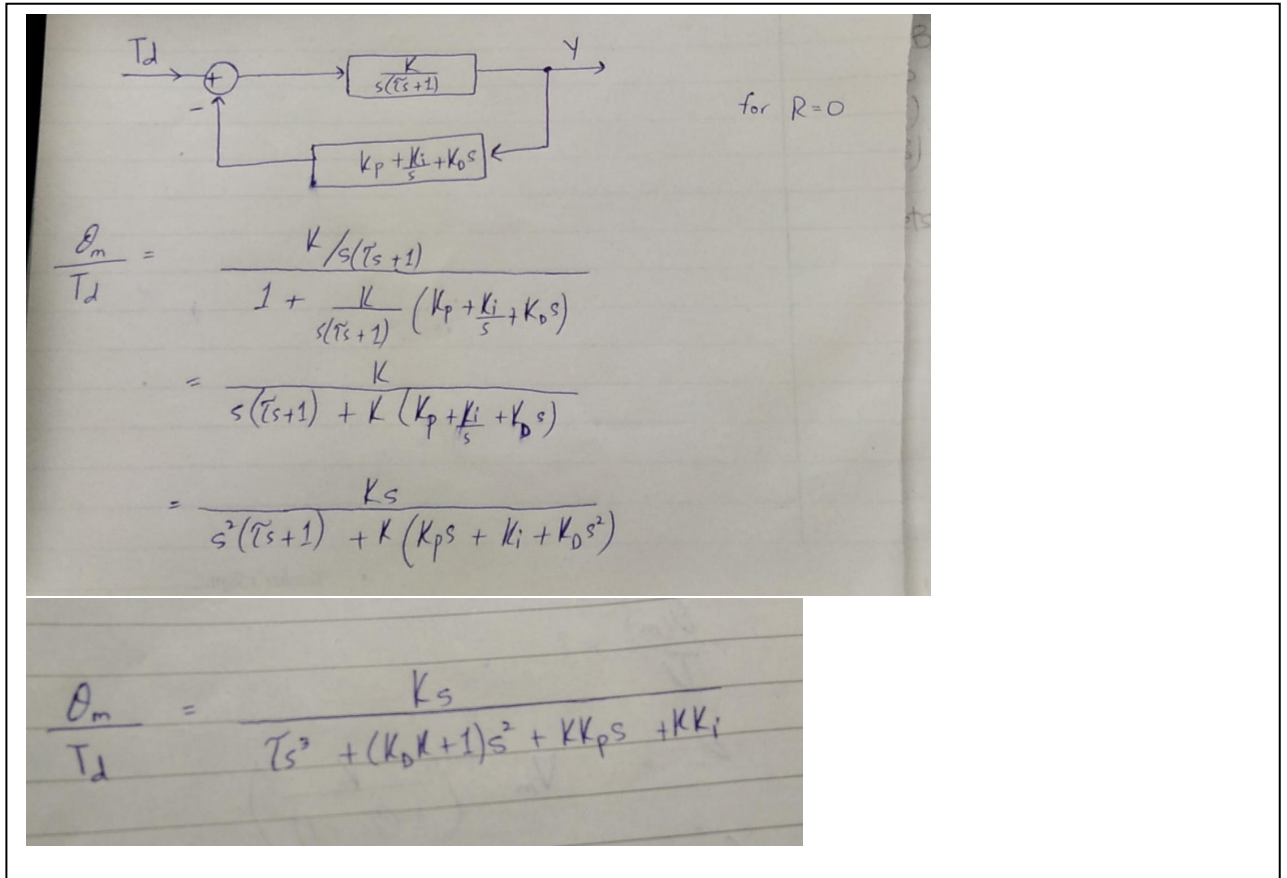 Td + K/s(τs+1) Y
for R=0
-
Kp + Ki/s + KDs
θm/Td = (K/s(τs+1)) / (1 + K/s(τs+1) (Kp + Ki/s + KDs))
= K / (s(τs+1) + K(Kp + Ki/s + KDs))
= Ks / (s²(τs+1) + K(Kps + Ki + KDs²))
θm/Td = Ks / (τs³ + (KDK+1)s² + KKps + KKi)